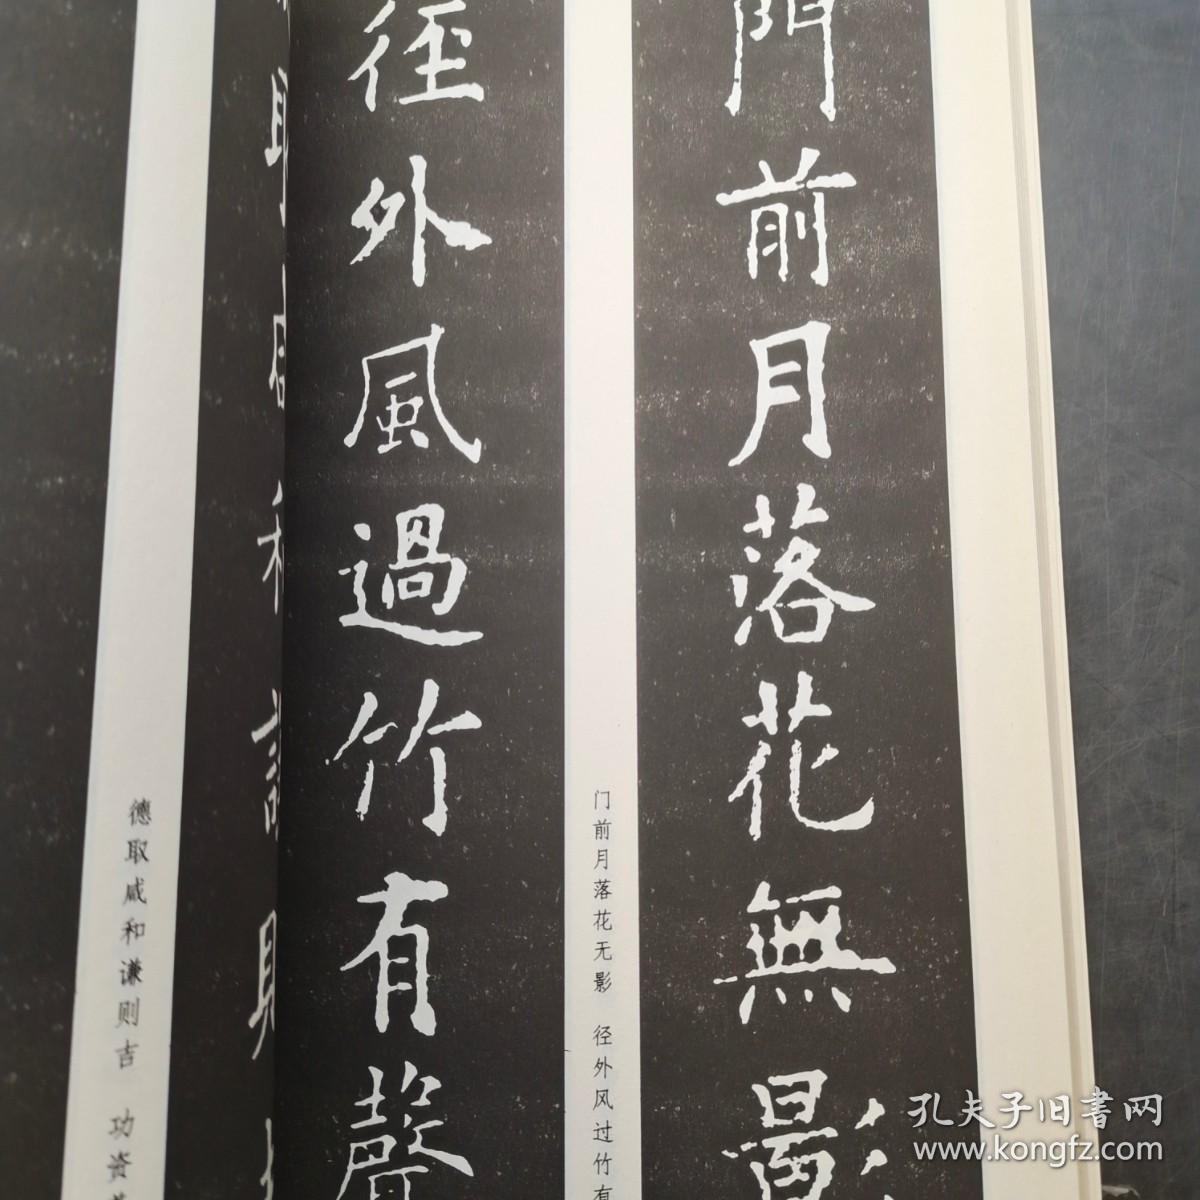 門前月落花無影
门前月落花无影 径外风过竹有
徑外風過竹有聲
德取咸和谦则吉 功资
孔夫子旧書网
www.kongfz.com